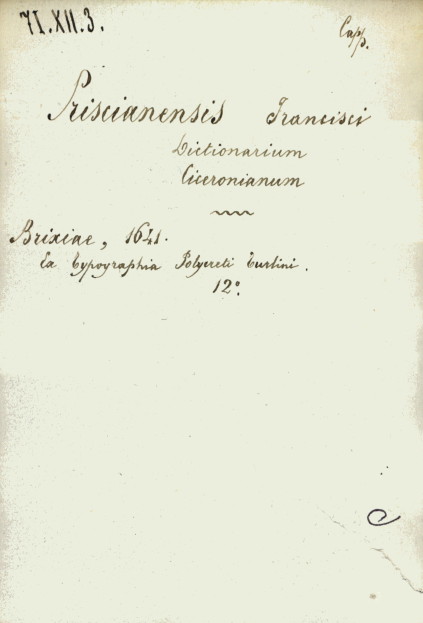 71.XII.3.
Capp.
Priscianensis Francisci
Dictionarium
Ciceronianum
Brixiae, 1641.
Ex Typographia Polycreti Turlini.
12º.